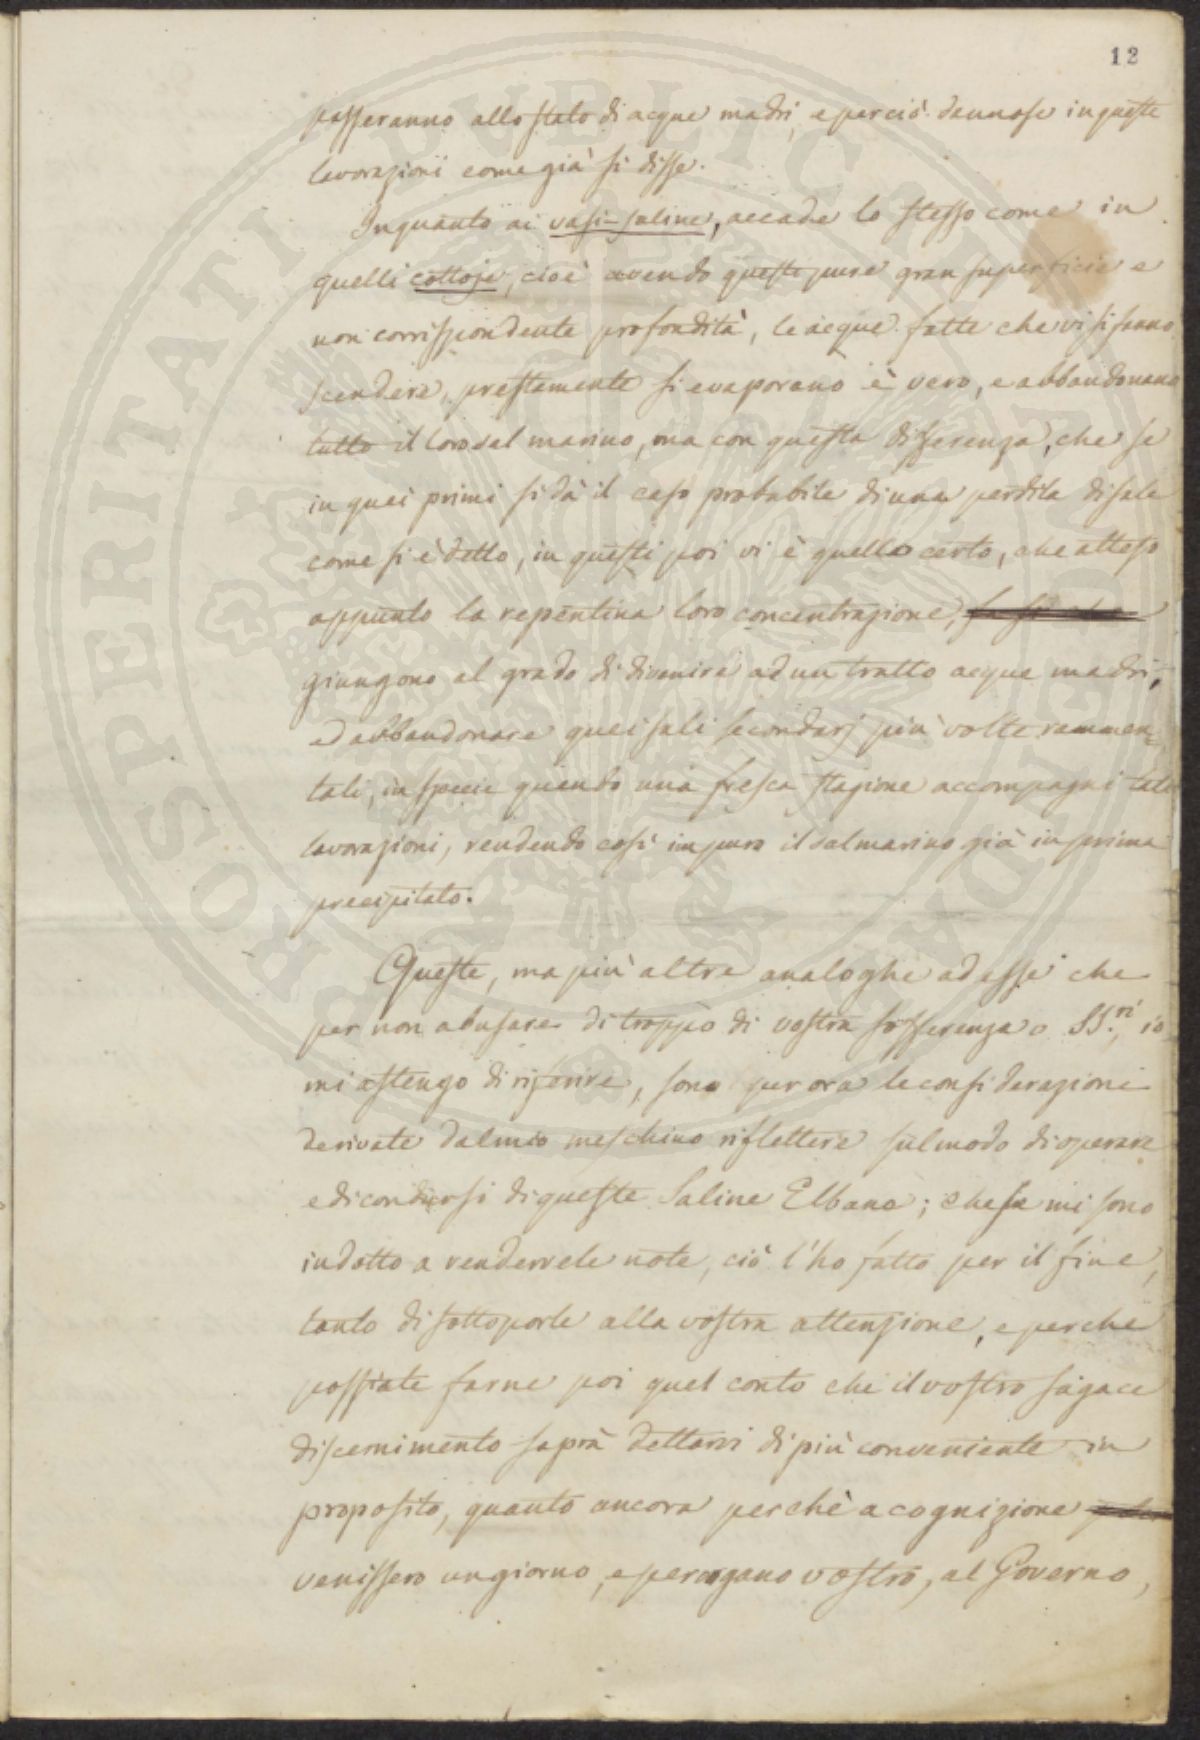 12
passeranno allo stato di acque madri, e perciò dannose in queste
lavorazioni come già si disse.
Inquanto ai vasi-saline, accade lo stesso come in
quelli cottoje, cioè avendo queste pure gran superficie e
non corrispondente profondità, le acque fatte che vi si fanno
scendere, prestamente si evaporano è vero, e abbandonano
tutto il loro sal marino, ma con questa differenza, che se
in quei primi si dà il caso probabile di una perdita di sale
come si è detto, in questi poi vi è quello certo, che atteso
appunto la repentina loro concentrazione,
giungono al grado di divenire ad un tratto acque madri,
ed abbandonare quei sali secondarj più volte rammen=
tati, in specie quando una fresca stagione accompagni tali
lavorazioni, rendendo così impuro il sal marino già in prima
precipitato.
Queste, ma più altre analoghe ad esse che
per non abusare di troppo di vostra sofferenza o SS.ri, io
mi astengo di riferire, sono per ora le considerazioni
derivate dal mio meschino riflettere sul modo di operare
e di condursi di queste Saline Elbane; che se mi sono
indotto a rendervele note, ciò l'ho fatto per il fine,
tanto di sottoporle alla vostra attenzione, e perchè
possiate farne poi quel conto che il vostro sagace
discernimento saprà dettarvi di più conveniente in
proposito, quanto ancora perchè a cognizione
venissero un giorno, e per organo vostro, al Governo,
PROSPERITATI PUBLICAE AUGENDAE